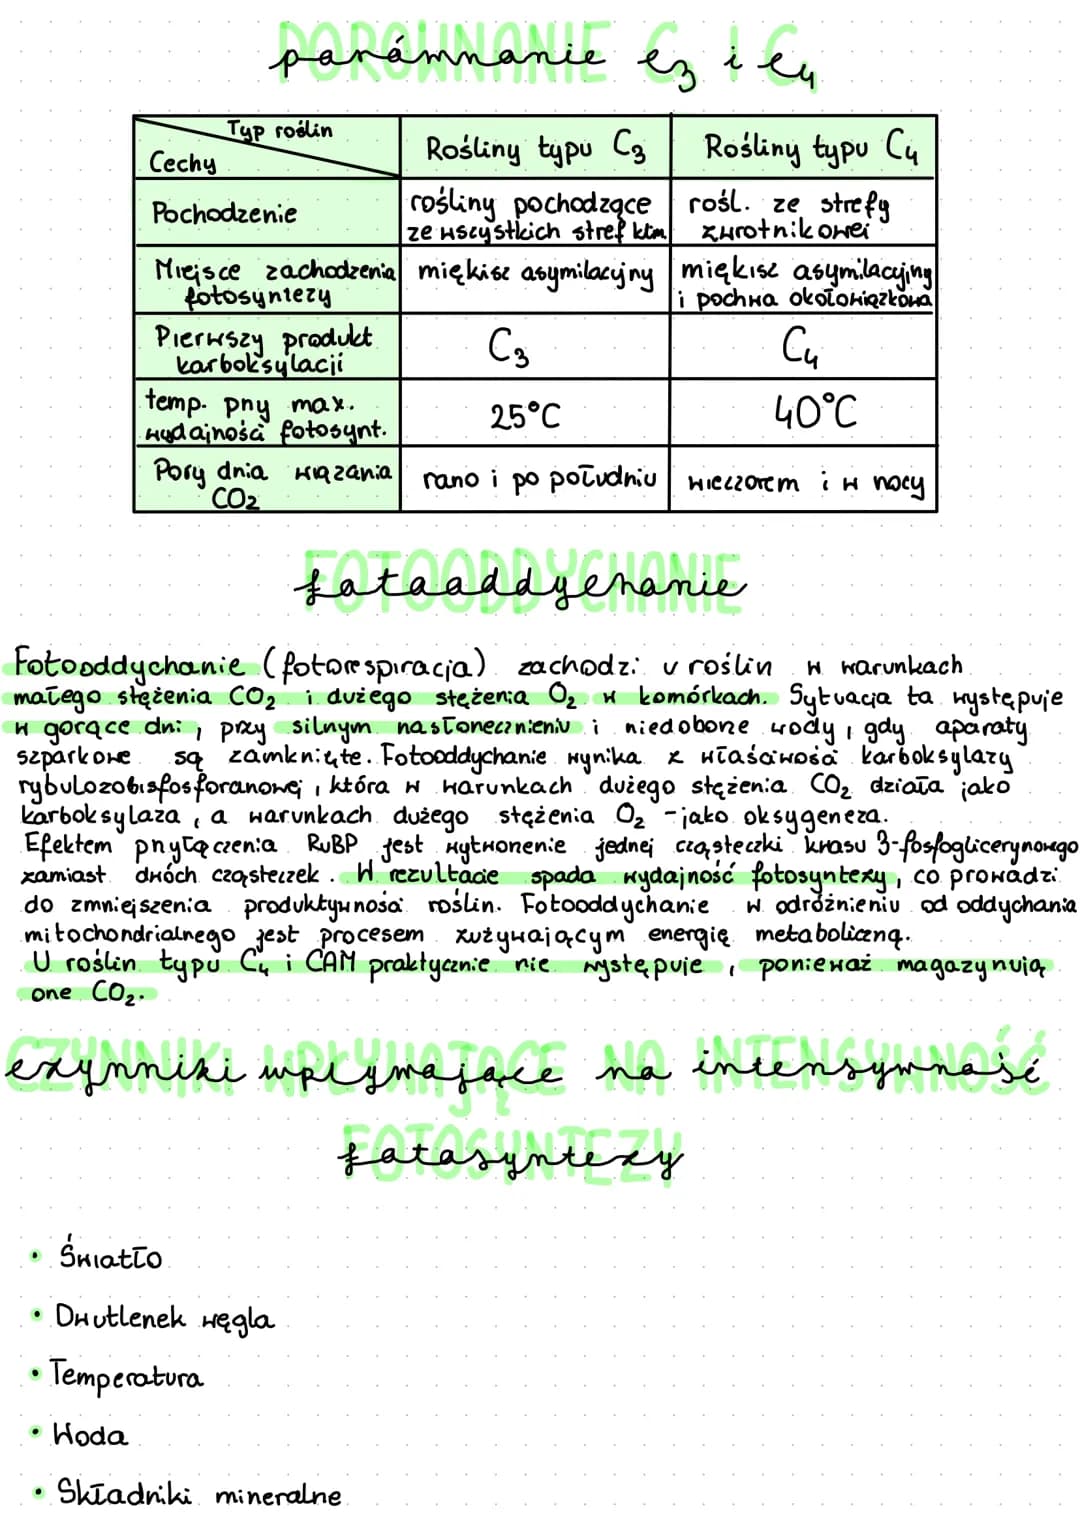 porównanie C3 i C4
Typ roślin
Cechy
Rośliny typu C3
Rośliny typu C4
Pochodzenie
rośliny pochodzące
ze wszystkich stref klim
rośl. ze strefy
zwrotnikowej
Miejsce zachodzenia
fotosyntezy
miękisz asymilacyjny
miękisz asymilacyjny
i pochwa okołowiązkowa
Pierwszy produkt
karboksylacji
C3
C4
temp. pny max.
wydajności fotosynt.
25°C
40°C
Pory dnia wiązania
CO2
rano i po południu
wieczorem i w nocy
fotooddychanie
Fotooddychanie (fotorespiracja) zachodzi u roślin w warunkach
małego stężenia CO2 i dużego stężenia O2 w komórkach. Sytuacja ta występuje
w gorące dni, przy silnym nasłonecznieniu i niedobone wody, gdy aparaty
szparkowe są zamknięte. Fotooddychanie wynika z właściwości karboksylazy
rybulozobisfosforanowej, która w warunkach dużego stężenia CO2 działa jako
karboksylaza, a warunkach dużego stężenia O2 - jako oksygeneza.
Efektem pnyłączenia RuBP jest wytwonenie jednej cząsteczki kwasu 3-fosfoglicerynowego
zamiast dwóch cząsteczek. W rezultacie spada wydajność fotosyntezy, co prowadzi
do zmniejszenia produktywności roślin. Fotooddychanie w odróżnieniu od oddychania
mitochondrialnego jest procesem zużywającym energię metaboliczną.
U roślin typu C4 i CAM praktycznie nie występuje, ponieważ magazynują
one CO2.
czynniki wpływające na intensywność
fotosyntezy
• Światło
• Dwutlenek węgla
• Temperatura
• Woda
• Składniki mineralne